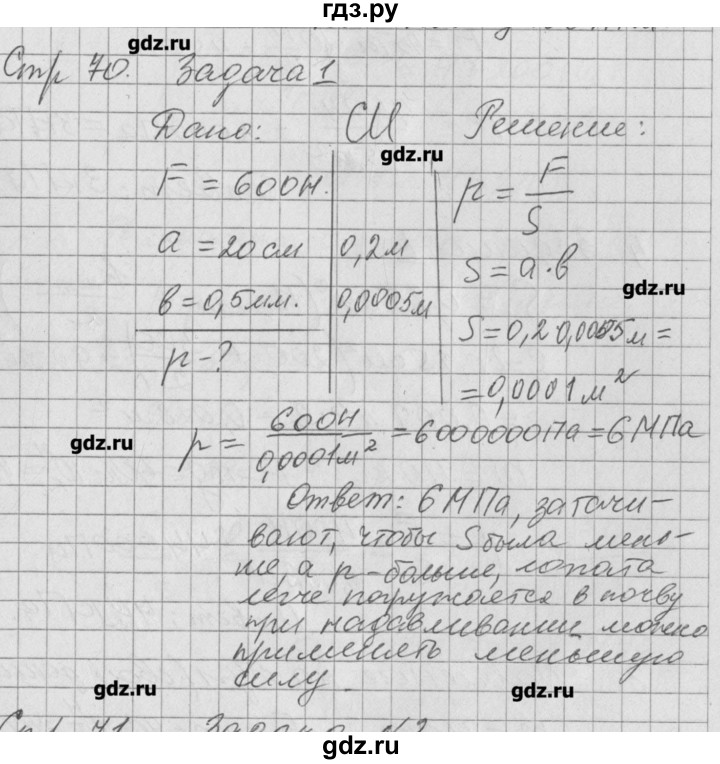 гдз.ру
gdz.ru
Стр 70. Задача 1
Дано: СИ Решение:
gdz.ru
F = 600Н. p = F/S
a = 20 см 0,2м S = a·в
gdz.ru
в = 0,5мм. 0,0005м S = 0,2 0,0005м =
p - ? = 0,0001 м²
gdz.ru
p = 600Н/0,0001м² = 6000000Па = 6 МПа
Ответ: 6 МПа, заточи-
вают, чтобы S была мень-
ше, а p - больше, лопата
легче погружается в почву
при надавливании можно
применять меньшую
силу.
gdz.ru gdz.ru
Стр 71. Задача №2
gdz.ru